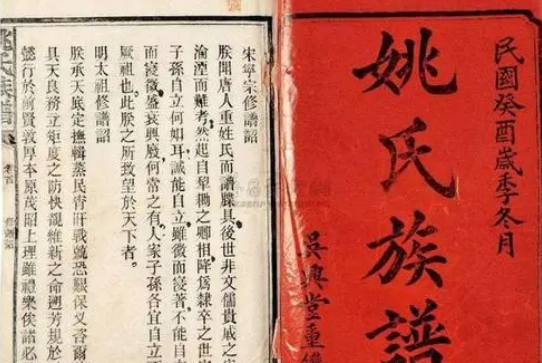 民國癸酉歲季冬月
姚氏族譜
吳興堂重
宋寧宗修譜詔
朕聞唐人重姓氏而譜牒具後世非文儒貴戚之
淪湮而難考然起自犁耦之卿相降為隸卒之世
子孫自立何如耳誠能自立雖微而寖著不能自
而寖微盛衰興廢何常之有人家子孫各宜自立
厥祖也此朕之所致望於天下者
明太祖修譜詔
朕承天底定撫輯蒸民胥
戰兢恐艱保乂咨爾
具天良務立矩度之防快覩維新之命遡芳規於
懿行於前賢敦厚本原茂昭上理雖禮樂俟諸必
姚氏族譜
卷首